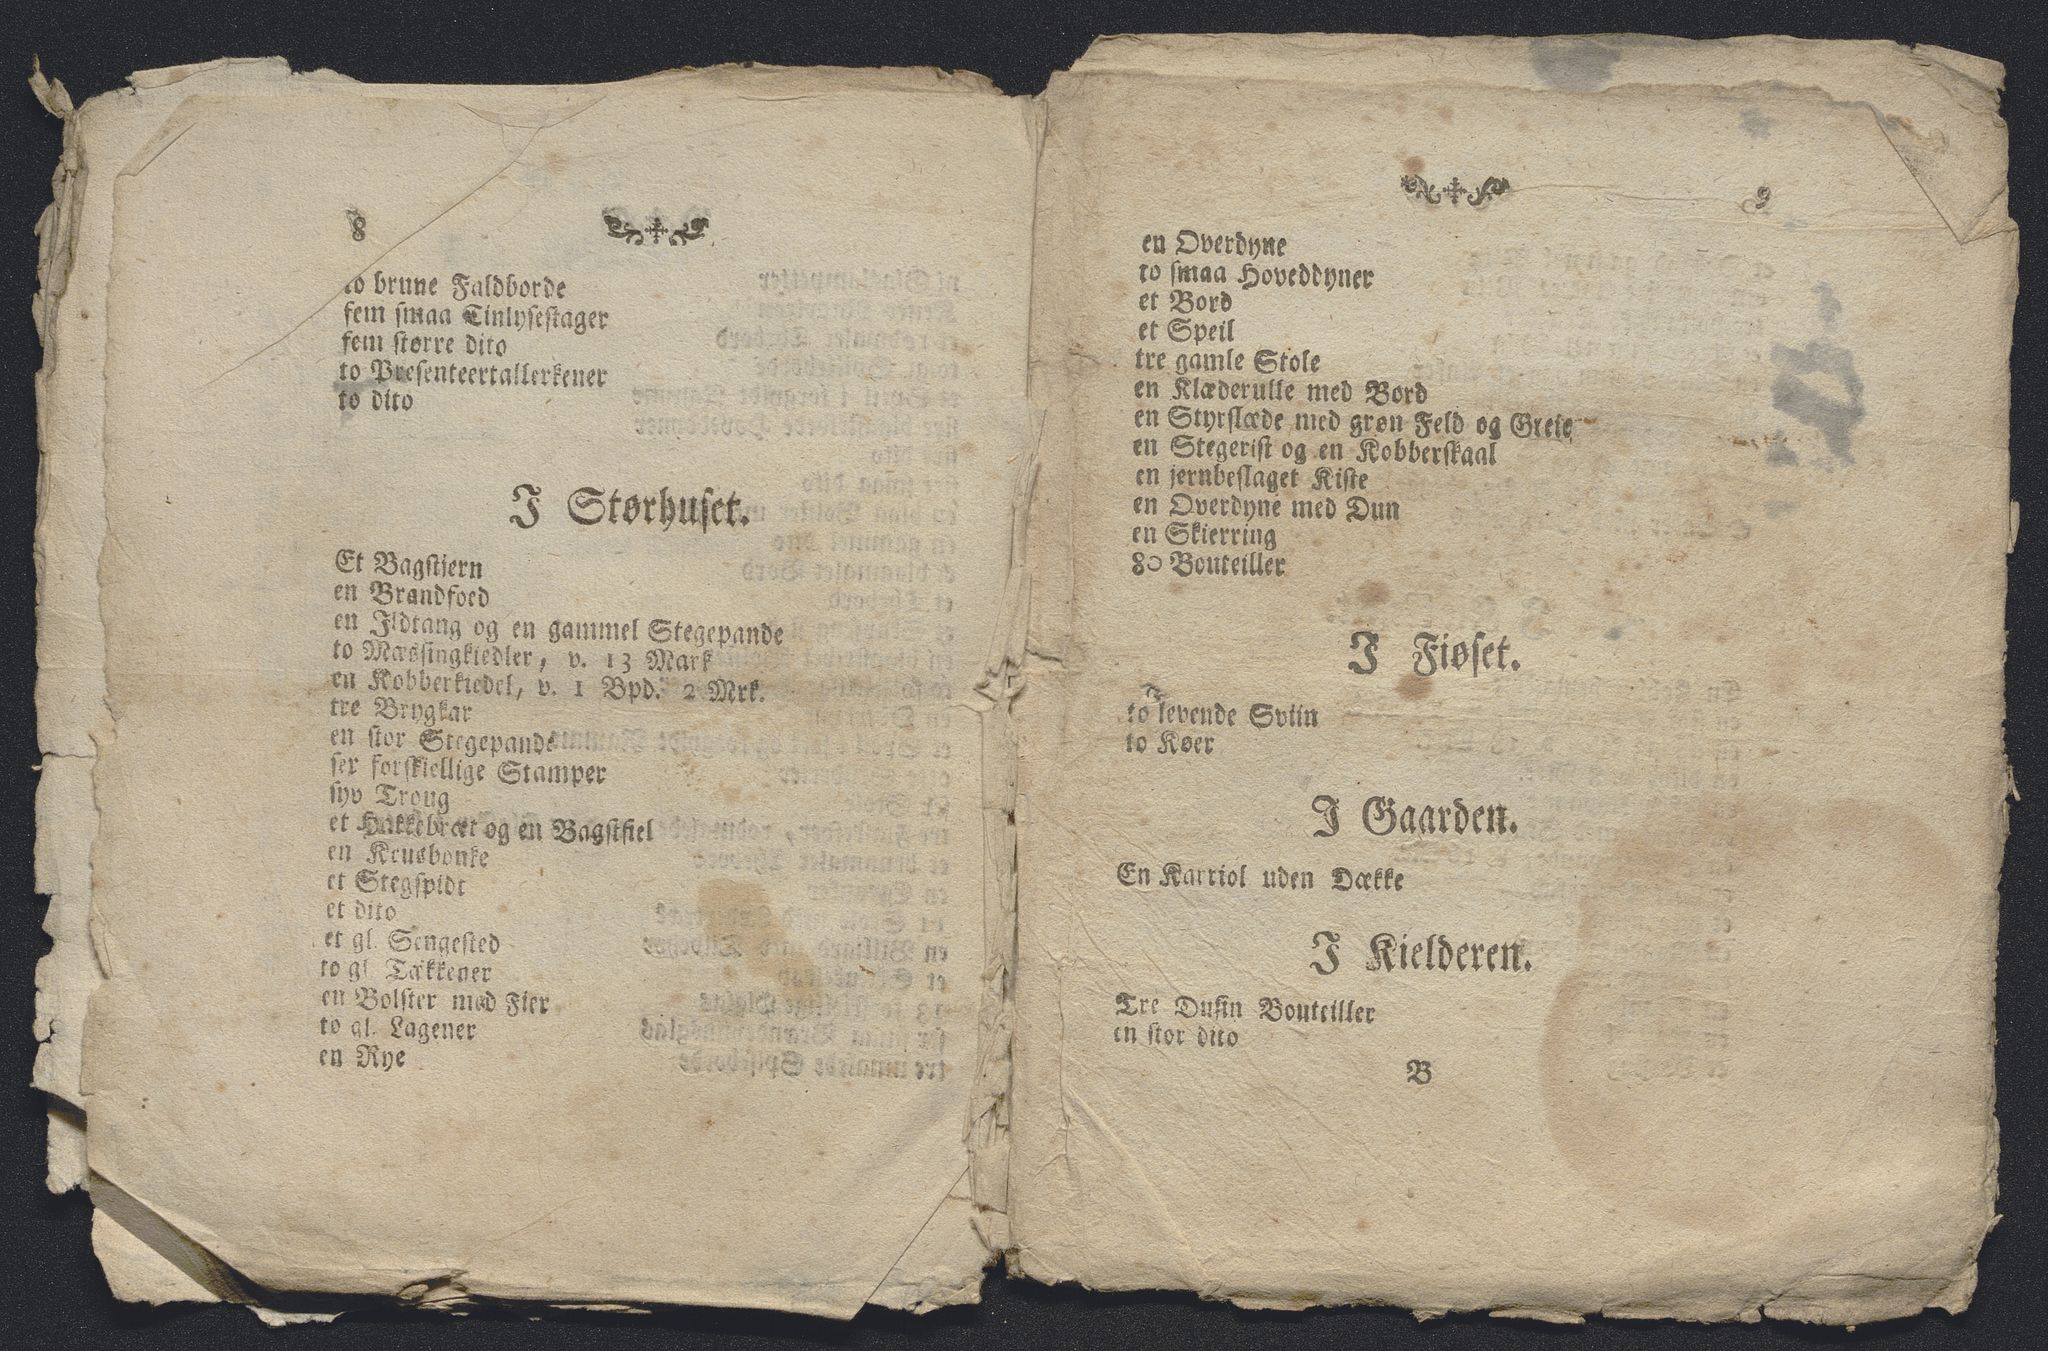 8
to brune Faldborde
fem smaa Tinlysestager
fem større dito
to Presenteertallerkener
to dito
I Størhuset.
Et Bagstjern
en Brandfoed
en Ildtang og en gammel Stegepande
to Mæssingkiedler, v. 13 Mark
en Kobberkiedel, v. 1 Bpd. 2 Mrk.
tre Brygkar
en stor Stegepande
sex forskiellige Stamper
syv Troug
et Hakkebræt og en Bagstfiel
en Krusbonke
et Stegspidt
et dito
et gl. Sengested
to gl. Tækkener
en Bolster med Fier
to gl. Lagener
en Rye
9
en Overdyne
to smaa Hoveddyner
et Bord
et Speil
tre gamle Stole
en Klæderulle med Bord
en Styrslæde med grøn Feld og Greie
en Stegerist og en Kobberskaal
en jernbeslaget Kiste
en Overdyne med Dun
en Skierring
80 Bouteiller
I Fiøset.
to levende Sviin
to Køer
I Gaarden.
En Karriol uden Dække
I Kielderen.
Tre Dusin Bouteiller
en stor dito
B